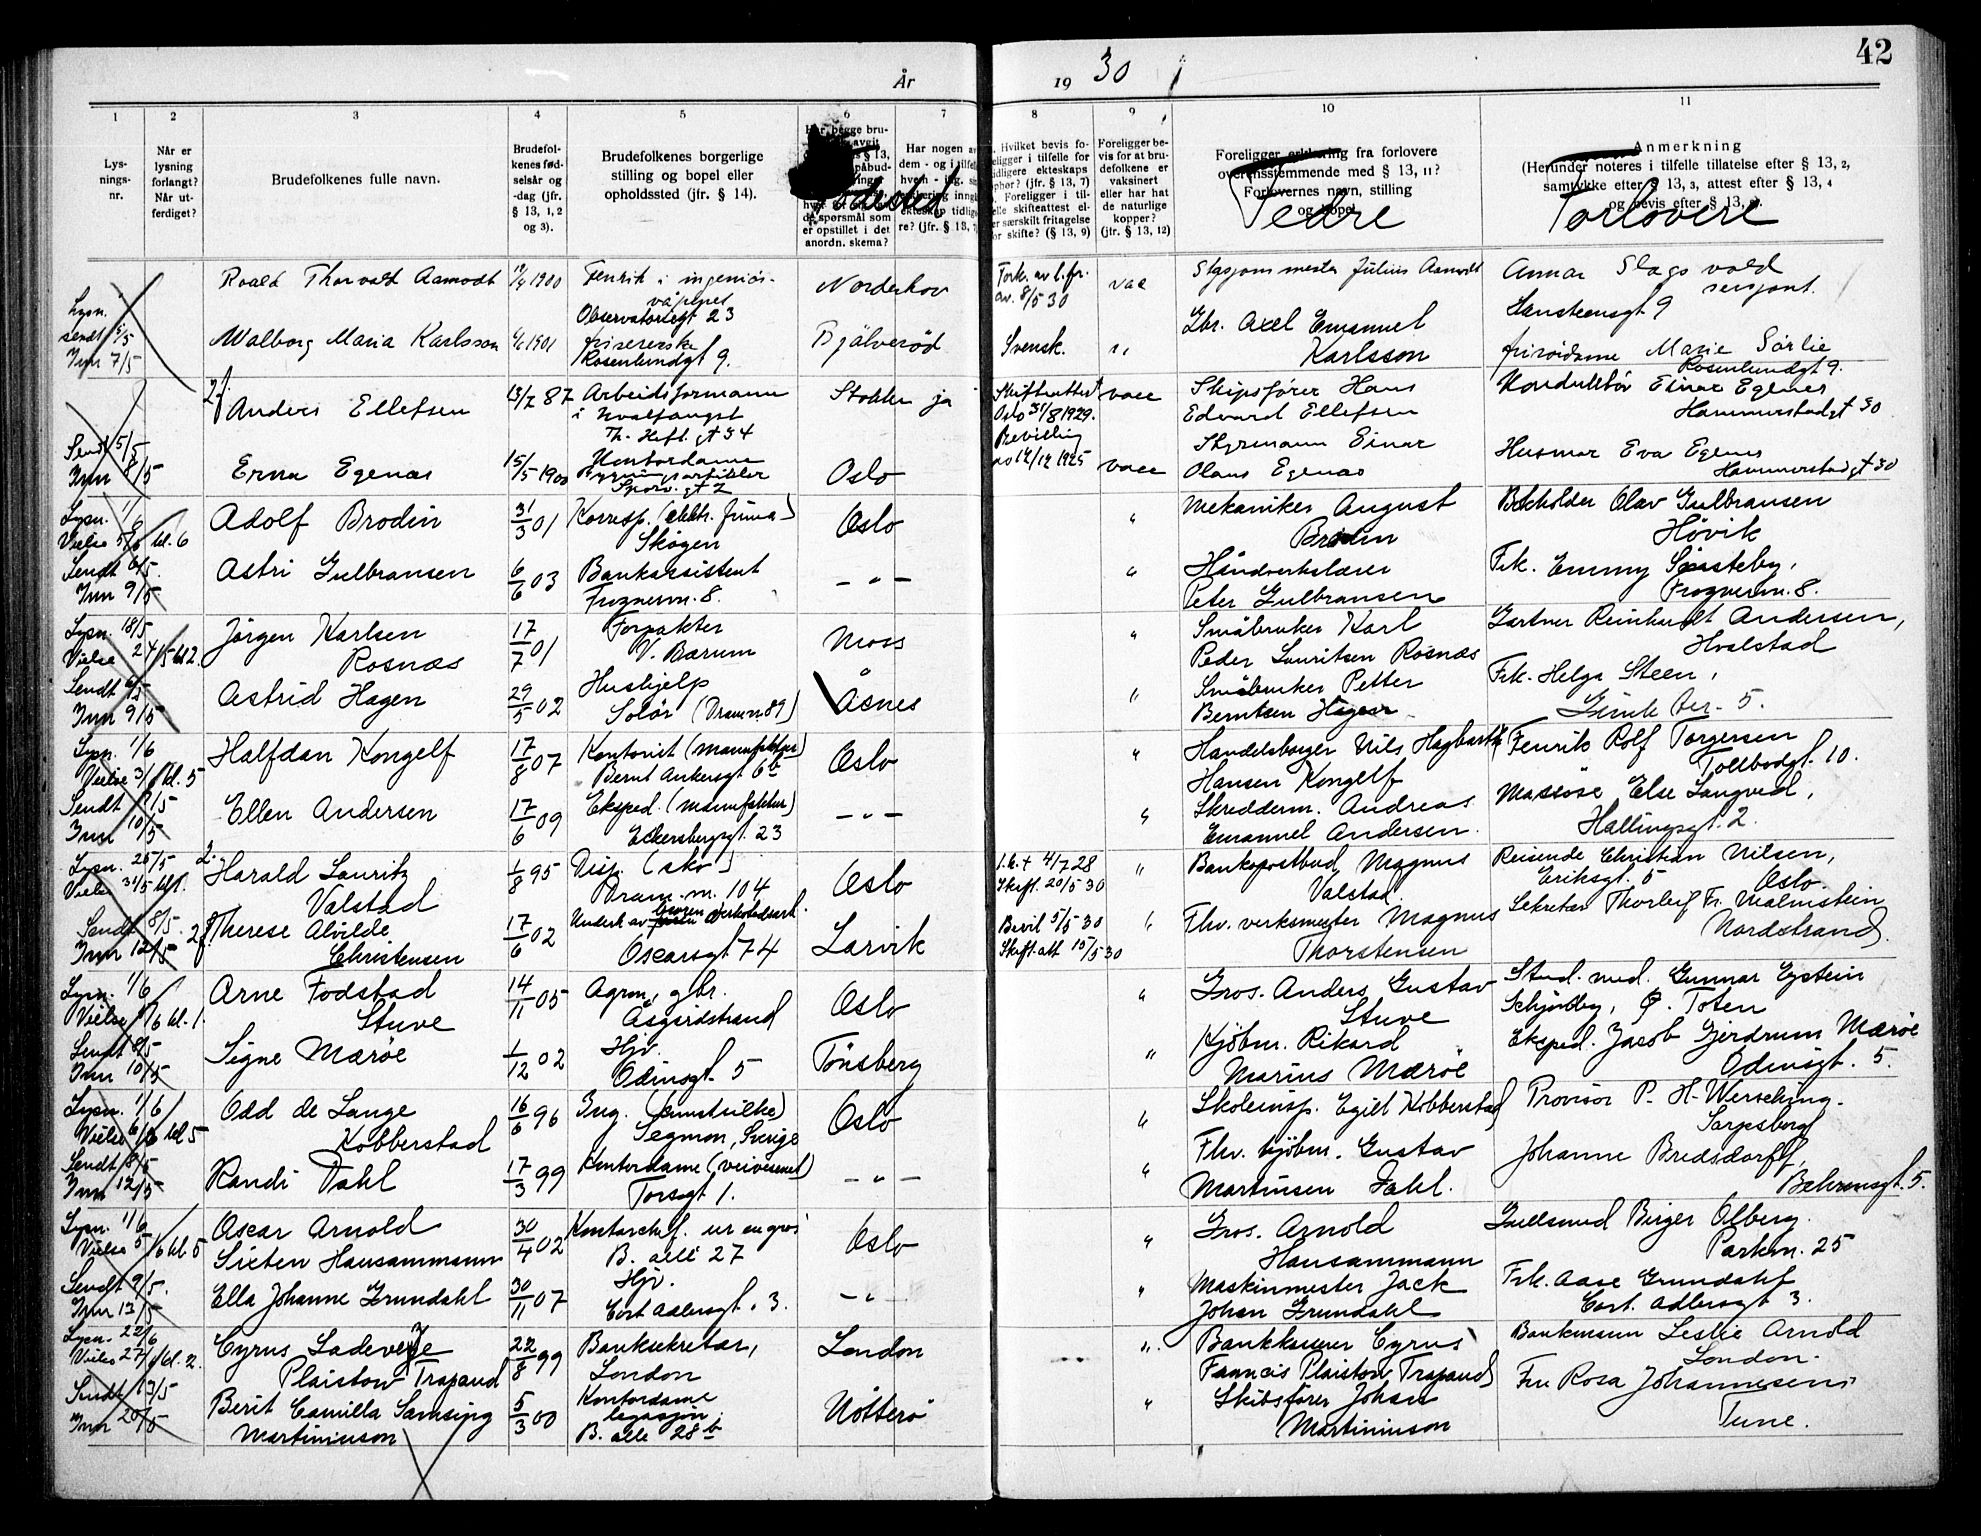 42
År 19 30
1 2 3 4 5 6 7 8 9 10 11
Lys-
nings-
nr.
Når er
lysning
forlangt?
Når ut-
ferdiget?
Brudefolkenes fulle navn.
Brudefol-
kenes fød-
selsår og
-dag (jfr.
§ 13, 1, 2
og 3).
Brudefolkenes borgerlige
stilling og bopel eller
opholdssted (jfr. § 14).
Fødested
de spørsmål som
er opstillet i det
anordn. skema?
Har nogen av
dem - og i tilfelle
ekteskap tidlige-
re? (jfr. § 13,
Hvilket bevis fo-
religger i tilfelle for
tidligere ekteskaps
ophør? (jfr. § 13, 7)
Foreligger i til-
felle skifteattest el-
ler særskilt fritagelse
for skifte? (§ 13, 9)
Foreligger be-
vis for at bru-
defolkene er
vaksinert
eller har hat
de naturlige
kopper?
(jfr. § 13, 12)
Foreligger erklæring fra forlovere
overensstemmende med § 13, 11?
Forlovernes navn, stilling
og bopel
Fedre
Anmerkning
(Herunder noteres i tilfelle tillatelse efter § 13, 2,
samtykke efter § 13, 3, attest efter § 13, 4
og bevis efter § 13,
Forlovere
Lysn.
sendt 5/5
Inn 7/5
Roald Thorvald Aamodt 1900 Fenrik i ingeniør-
våpnet
Observatoriegt 23
Norderhov
8/5 30
vac
Julius Aamodt
Annar Slagsvold
sersjant.
Hansteensgt 9
Walborg Maria Karlsson 1901 friserske
Rosenlundgt 9.
Bjälveröd
Svensk.
Gbr. Axel Emanuel
Karlsson
frisördame Marie Sörlie
Rosenlundgt 9.
Sendt 5/5
Inn 8/5
Anders Ellefsen 13/7 87 Arbeidsformann
i hvalfangst
Th. Heft. gt 34
Stokke ja
Skifteattest
Oslo 31/8 1929.
vacc
Skipsfører Hans
Edvard Ellefsen
Konduktör Einar Egenes
Hammerstadgt 30
Erna Egenæs 15/5 1900 Kontordame
Sporv. gt 2
Oslo
Bevilling
vacc
Styrmann Einar
Olaus Egenæs
Husmor Eva Egenes
Hammerstadgt 30
Lysn. 1/6
Vielse 5/6 kl. 6
Sendt 6/5.
Inn 9/5
Adolf Brodin 31/3 01 Korresp. (elektr. firma)
Skøyen
Oslo
"
Mekaniker August
Brodin
Bokholder Olav Gulbransen
Hövik
Astri Gulbransen 6/6 03 Bankassistent
Frognervn. 8.
- " -
"
Håndverkslærer
Peter Gulbransen
Frk. Emmy Sønsteby,
Frognervn. 8.
Lysn. 18/5
Vielse 24/5 kl 2.
Sendt 6/5
Inn 9/5
Jörgen Karlsen
Rosnæs
17/7 01 Forpakter
V. Bærum
Moss
"
Småbruker Karl
Peder Lauritsen Rosnæs
Gartner Reinhardt Andersen,
Hvalstad
Astrid Hagen 29/5 02 Hushjelp
Solör (Dramvn 89)
Åsnes
"
Småbruker Petter
Berntsen Hagen
Frk. Helga Steen,
5.
Lysn. 1/6
Vielse 3/6 kl. 5
Sendt 8/5
Inn 10/5
Halfdan Kongelf 17/8 07 Kontorist (manufaktur)
Bernt Ankersgt 6b
Oslo
"
Handelsborger Nils Hagbarth
Hansen Kongelf
Fenrik Rolf Torgersen
Tollbodgt. 10.
Ellen Andersen 17/6 09 Eksped. (manufaktur)
Eckersbergsgt. 23
- " -
"
Skredderm. Andreas
Emanuel Andersen.
Massöse Else Langved,
Hallingsgt. 2.
Lysn. 25/5
Vielse 31/5 kl 1.
Sendt 8/5.
Inn 12/5
2.
Harald Lauritz
Valstad
1/8 95 Disp. (sko)
Dram. vn. 104
Oslo
1. k. + 4/7 28
Skift. 20/5 30
"
Bankopostbud Magnus
Valstad.
Reisende Christian Nilsen,
Eriksgt. 5 Oslo.
Therese Alvilde
Christensen
17/6 02
Oscarsgt 74
Larvik
Bevil 5/5 30
Skift. att 15/5 30
"
Fhv. verksmester Magnus
Thorstensen
Sekretær Thorleif Fr. Malmstein
Nordstrand.
Lysn. 1/6
Vielse 7/6 kl. 1.
Sendt 8/5
Inn 10/5
Arne Fodstad
Stuve
14/11 05 Agron. gbr.
Åsgårdstrand
Oslo
"
Gros. Anders Gustav
Stuve
Stud. med. Gunnar Eystein
Schjörlby, Ø. Toten
Signe Mæröe 1/12 02 Hjv.
Odinsgt. 5
Tönsberg
"
Kjöbm. Rikard
Marius Mæröe
Eksped. Jacob Gjerdrum Mæröe
Odinsgt. 5.
Lysn. 1/6
Vielse 6/6 kl 5
Sendt 8/5
Inn 12/5
Odd de Lange
Kobberstad
16/6 96 Ing. (kunstsilke)
Segmon, Sverige
Oslo
"
Skoleinsp. Egill Kobberstad
Provisor P. H. Wersching.
Sarpsborg
Randi Dahl 17/3 99 Kontordame (veivesenet)
Torsgt 1.
- " -
"
Fhv. kjöbm. Gustav
Martinsen Dahl.
Johanne Bredsdorff,
Behrensgt. 5.
Lysn. 1/6
Vielse 5/6 kl. 5
Sendt 9/5.
Inn 13/5
Oscar Arnold
Sixten Hansammann
30/4 02 Kontorchef. ur en gros
B. allé 27
Oslo
"
Gros. Arnold
Hansammann
Gullsmed Birger Olberg.
Parkvn. 25
Ella Johanne Grundahl 30/11 07 Hjv.
Cort Adlersgt. 3.
- " -
"
Maskinmester Jack
Johan Grundahl
Frk. Aase Grundahl
Cort. Adlersgt 3.
Lysn. 22/6
Vielse 27/6 kl. 2.
Sendt 13/5
Inn 20/5
Cyrus Ladeveze
Plaistow Trapaud
22/8 99 Banksekretær,
London
London
".
Bankkasserer Cyrus
Francis Plaistow Trapaud
Bankmann Leslie Arnold
London.
Berit Camilla Samsing
Martiniusson
5/3 00 Kontordame
legasjon.
B. allé 28b
Nötterö
"
Skibsfører Johan
Martiniusson
Fru Rosa Johannesen
Tune.